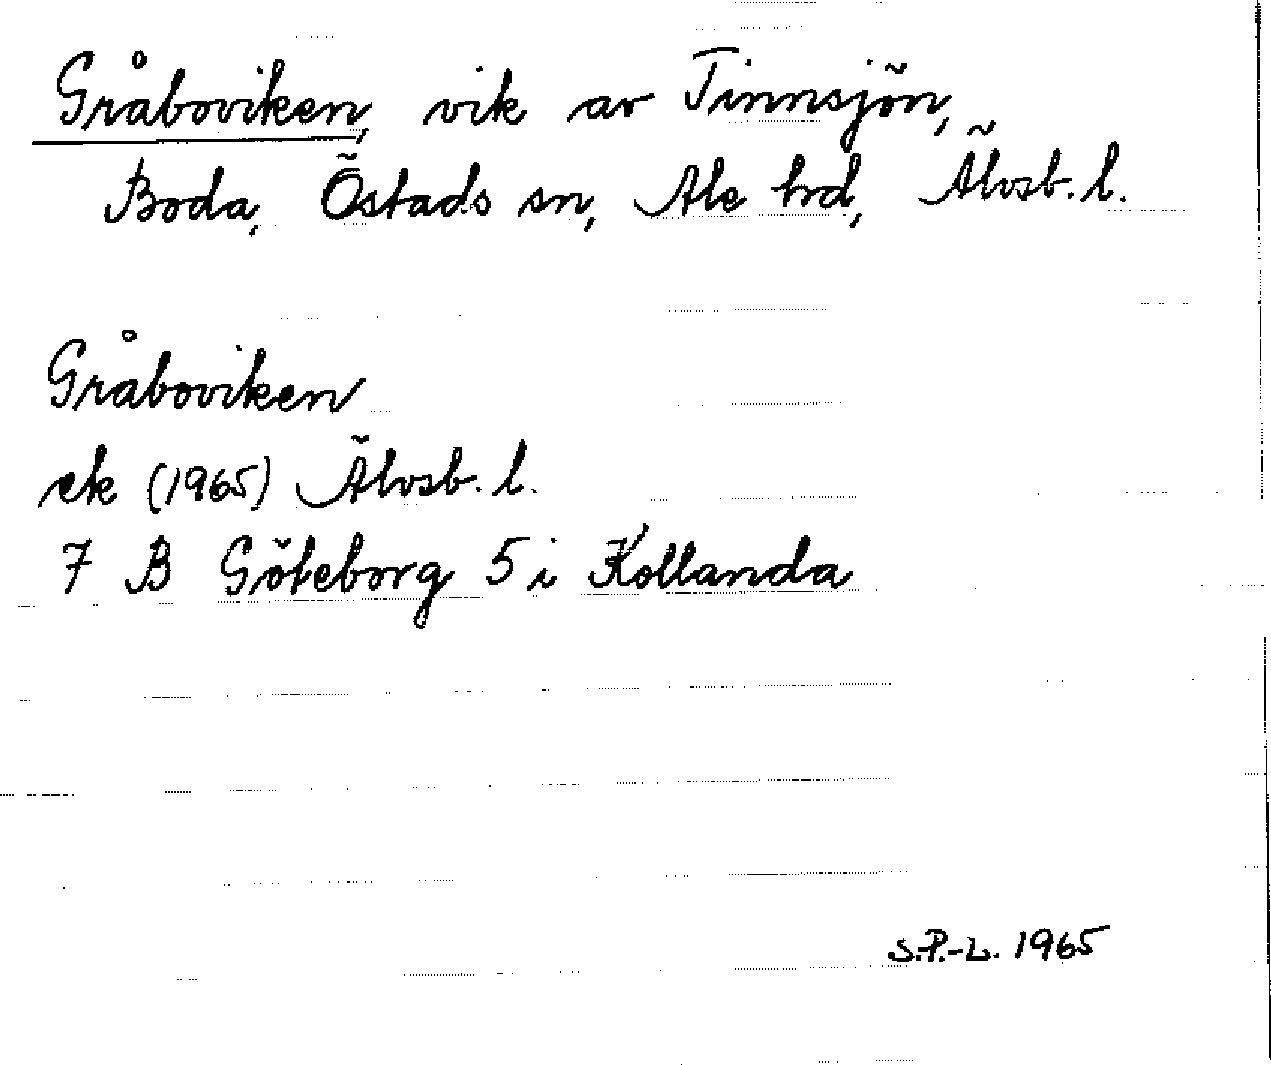 Gråboviken, vik av Tinnsjön,
Boda, Östads sn, Ale hd, Älvsb. l.
Gråboviken
ek (1965) Älvsb. l.
7 B Göteborg 5 i Kollanda
S.P.-L. 1965